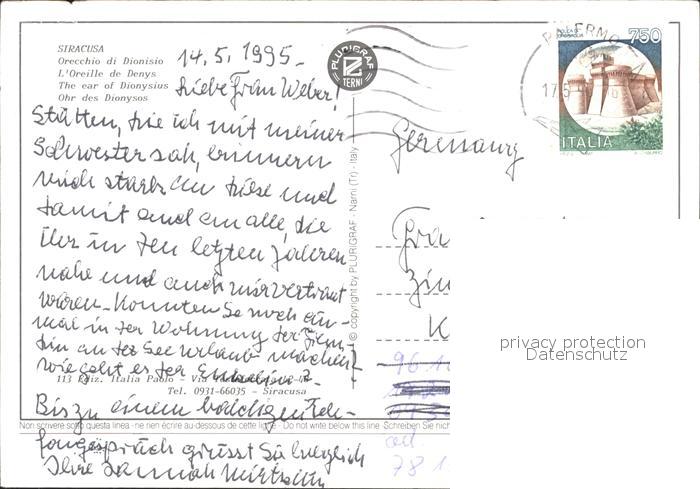 SIRACUSA
Orecchio di Dionisio
L'Oreille de Denys
The ear of Dionysius
Ohr des Dionysos
14.5.1995 -
Liebe Frau Weber!
Stätten, die ich mit meiner
Schwester sah, erinnern
mich stark an diese und
damit auch an alle, die
ihr in den letzten Jahren
nahe und auch mir vertraut
waren. - Konnten Sie noch ein-
mal in der Wohnung der Freun-
din an der See Urlaub machen?
Wie geht es der
113 Ediz. Italia Paolo - Via
Tel. 0931-66035 - Siracusa
Bis zu einem baldigen Tele-
Non scrivere sotto questa linea - ne rien écrire au-dessous de cette ligne - Do not write below this line - Schreiben Sie nich
fongespräch grüsst Sie herzlich
Ihre Hannah
PLURIGRAF
TERNI
© copyright by PLURIGRAF - Narni (Tr) - Italy
PALERMO
17.5
750
ITALIA
Germany
Fra
Zin
K
96 1
78 1
privacy protection
Datenschutz